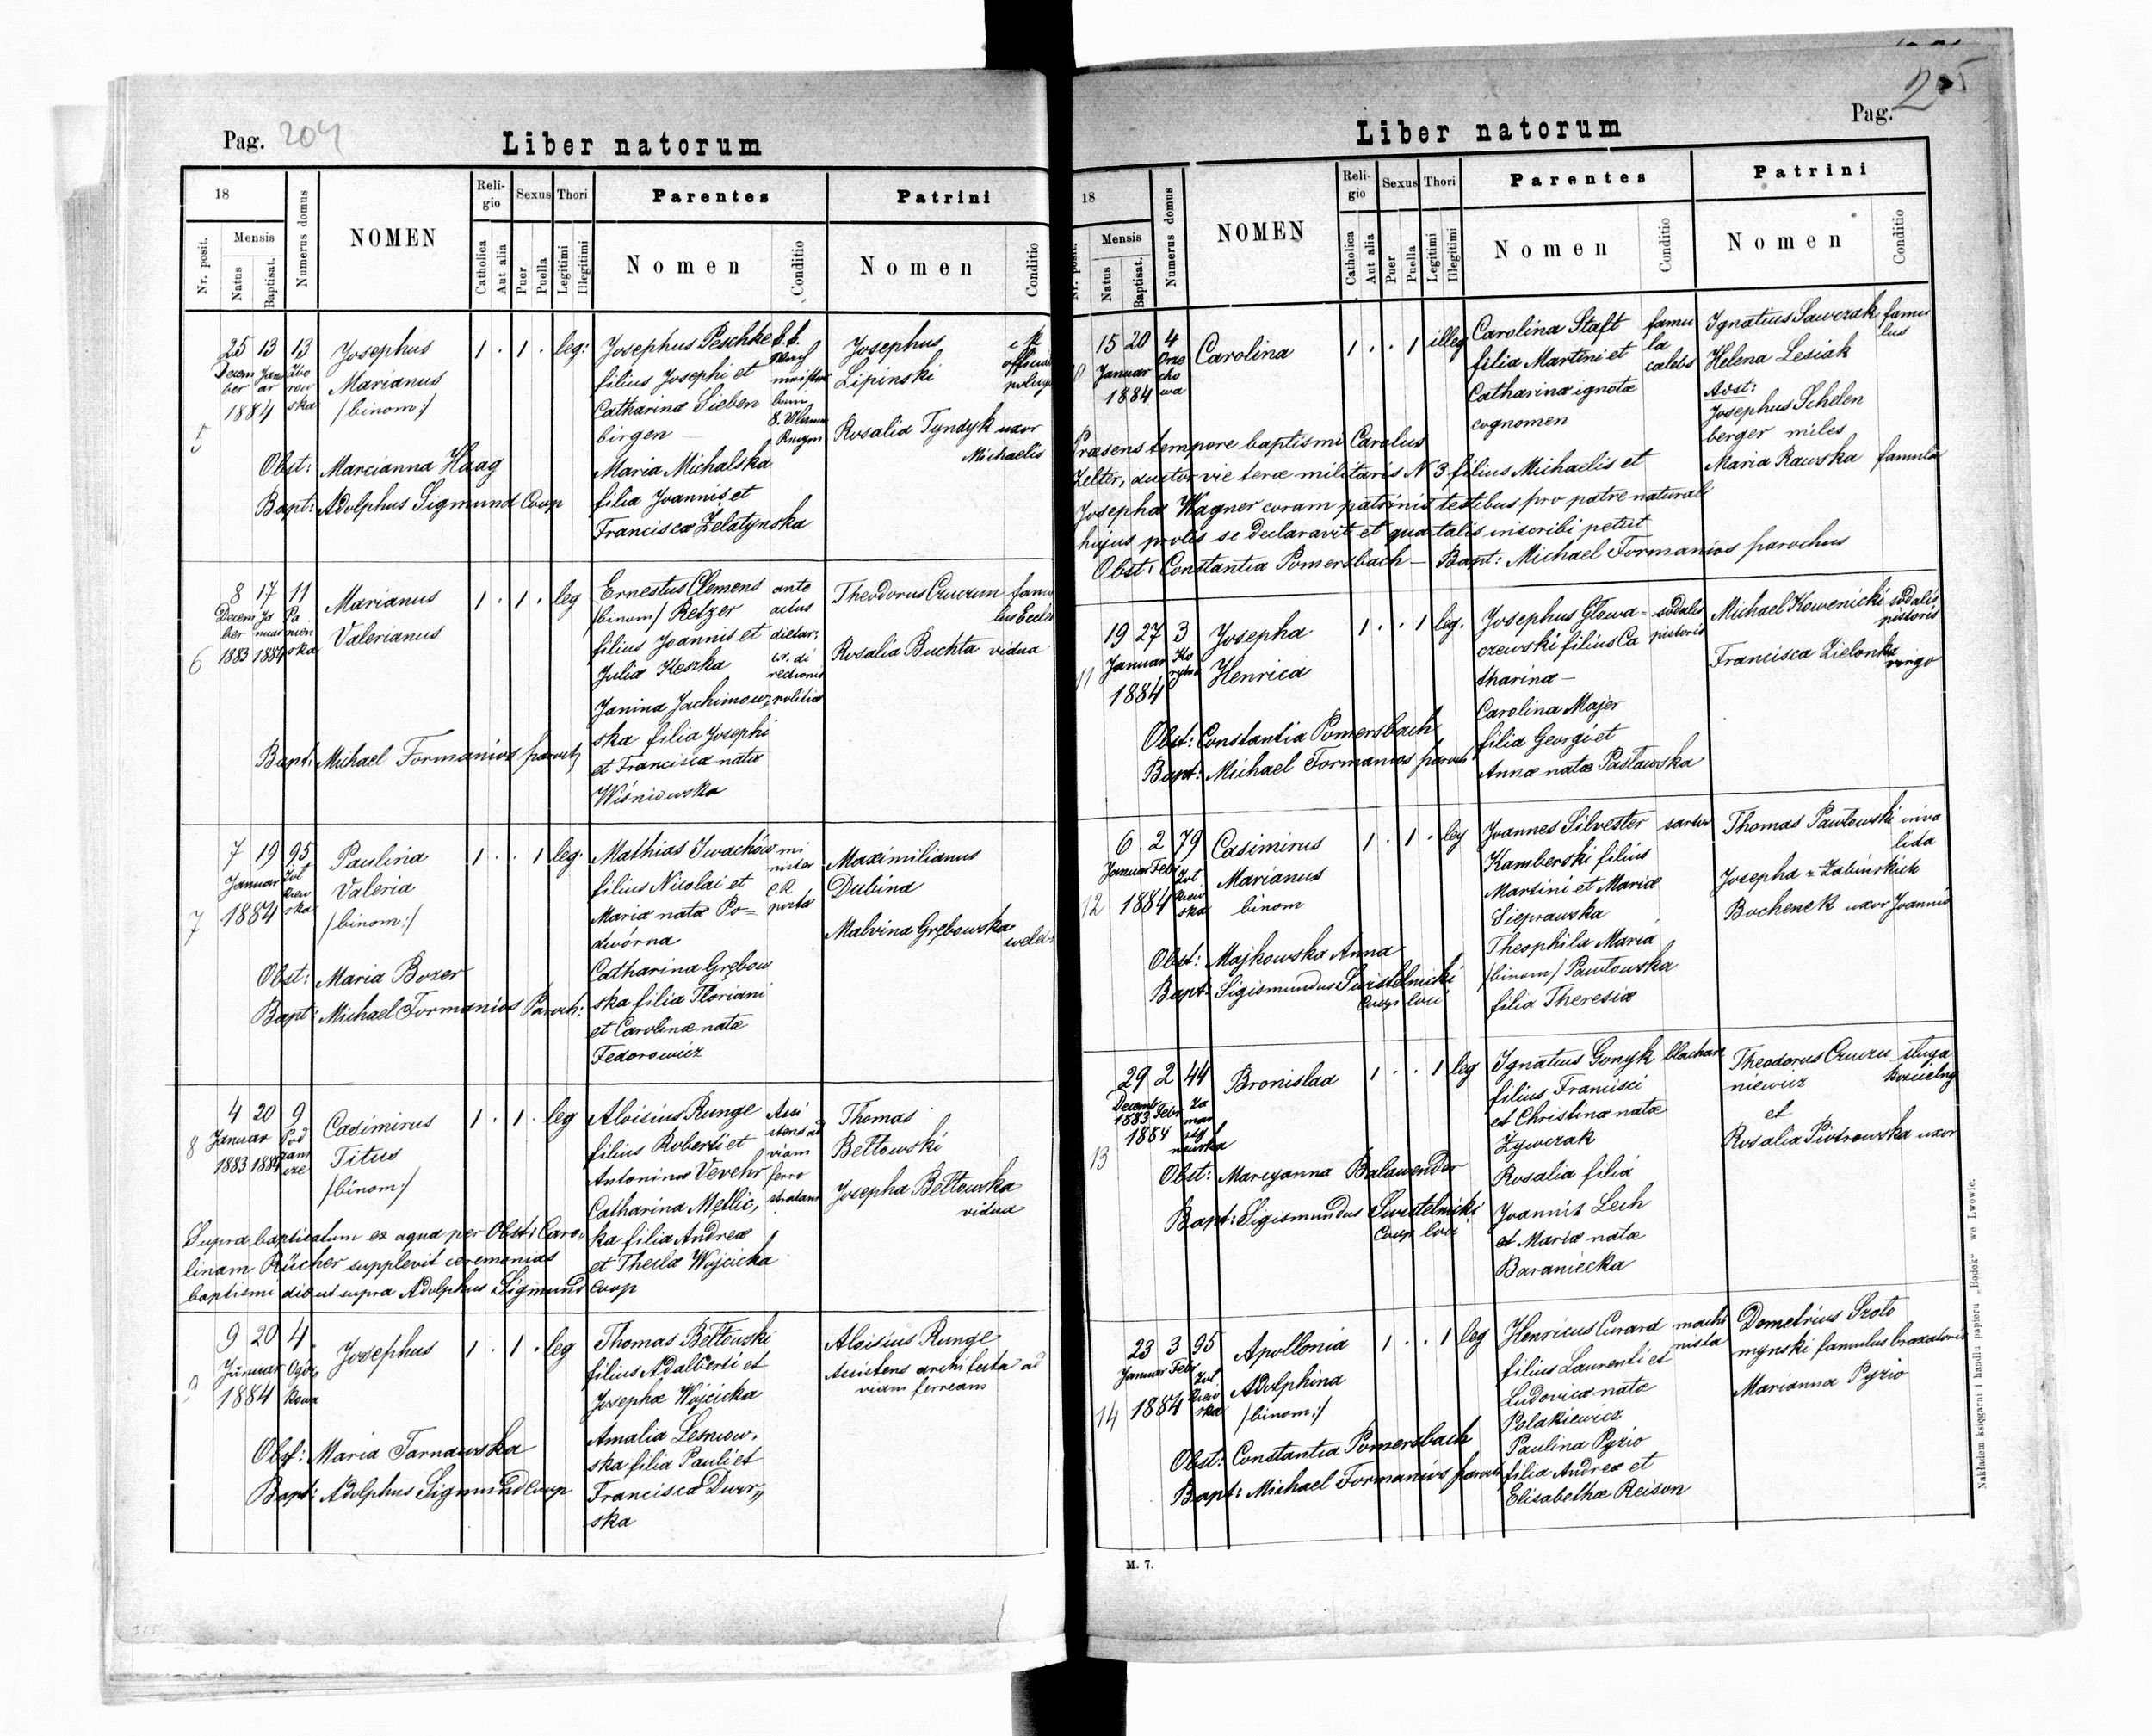 Pag. 204
Liber natorum
18
Mensis
Nr. posit.
Natus
Baptisat.
Numerus domus
NOMEN
Religio
Catholica
Aut alia
Sexus
Puer
Puella
Thori
Legitimi
Illegitimi
Parentes
Nomen
Conditio
Patrini
Nomen
Conditio
5
25 13 13
Decem
ber
Janu
ar
1884
Zbo
row
ska
Josephus
Marianus
/binom:/
1 . 1 . leg:
Josephus Peschke
filius Josephi et
Catharinæ Sieben
birgen
Maria Michalska
filia Joannis et
Francisca Zelatynska
Josephus
Lipinski
Rosalia Tyndyk uxor
Michaelis
Obst: Marcianna Haag
Bapt: Adolphus Sigmund Coop
6
8 17 11
Decem
ber
Ja
nuar
1883 1884
Pa
nien
ska
Marianus
Valerianus
1 . 1 . leg
Ernestus Clemens
/binom/ Retzer
filius Joannis et
Julia Keszka
Janina Jachimow,
ska filia Josephi
et Franciscæ natæ
Wiśniowska
dietar,
politiæ
Rosalia Buchta vidua
Bapt: Michael Formanios paroch
7
7 19 95
Januar
1884
Zol
kiew
ska
Paulina
Valeria
/binom:/
1 . . 1 leg.
Mathias Iwachów
filius Nicolai et
Mariæ natæ Po=
dwórna
Catharina Grębow
ska filia Floriani
et Carolinæ natæ
Fedorowicz
mi
nister
Maximilianus
Dubina
Malvina Grębowska
Obst: Maria Bozer
Bapt: Michael Formanios Paroch:
8
4 20 9
Januar
1883 1884
Pod
zam
cze
Casimirus
Titus
/binom:/
1 . 1 . leg
Aloisius Runge
filius Roberti et
Antoninæ Vevehr
Catharina Metlic,
ka filia Andreæ
et Theclæ Wojcicka
Assi
stens ad
viam
ferro
stratam
Thomas
Beltowski
Josepha Beltowska
vidua
Supra baptisatum ex aqua per Obst: Caro,
linam Rücher supplevit ceremonias
baptismi die ut supra Adolphus Sigmund Coop
9
9 20 4
Januar
1884
Josephus
1 . 1 . leg
Thomas Beltowski
filius Adalberti et
Josephæ Wojcicka
Amalia Lesniow,
ska filia Pauli et
Francisca Dwor,,
ska
Aloisius Runge
Assistens architecta ad
viam ferream
Obst: Maria Tarnawska
Bapt: Adolphus Sigmund Coop
Pag. 205
Liber natorum
18
Mensis
Nr. posit.
Natus
Baptisat.
Numerus domus
NOMEN
Religio
Catholica
Aut alia
Sexus
Puer
Puella
Thori
Legitimi
Illegitimi
Parentes
Nomen
Conditio
Patrini
Nomen
Conditio
15 20 4
Januar
1884
Orze
cho
wa
Carolina
1 . . 1 illeg
Carolina Staft
filia Martini et
Catharina ignotæ
cognomen
famu
la
cælebs
Ignatius Sawczak famu
lus
Helena Lesiak
Adst:
Josephus Schelen
berger miles
Maria Rawska famula
Præsens tempore baptismi Carolus
Zelter, ductor vie teræ militaris N 3 filius Michaelis et
Josepha Wagner coram patrinis testibus pro patre naturali
hujus prolis se declaravit et qua talis inscribi petiit
Obst: Constantia Pomersbach - Bapt: Michael Formanios parochus
11
19 27 3
Januar
1884
Josepha
Henrica
1 . . 1 leg.
Josephus Glowa=
czewski filius Ca
tharinæ -
Carolina Majer
filia Georgi et
Annæ natæ Pastawska
sodalis
pistoris
Michael Kowenicki sodalis
pistoris
Francisca Zielonka
virgo
Obst: Constantia Pomersbach
Bapt: Michael Formanios paroch
12
6 2 79
Januar Feb
1884
Zol
kiew
ska
Casimirus
Marianus
binom
1 . 1 . leg
Joannes Silvester sartor
Kamberski filius
Martini et Mariæ
Sieprawska
Theophila Maria
/binom/ Pawlowska
filia Theresiæ
Thomas Pawlowski inva
lida
Josepha z Zabinskich
Bochenek uxor Joannis
Obst: Majkowska Anna
Bapt: Sigismundus Swistelnicki
Coop loci
13
29 2 44
Decemb
1883 Febr
1884
Za
mar
Bronislaa
1 . . 1 leg
Ignatius Gonyk blachar
filius Francisci
et Christinæ natæ
Zywczak
Rosalia filia
Joannis Lech
et Mariæ natæ
Baraniecka
Theodorus Czucru sługa
niewicz kościelny
et
Rosalia Piotrowska uxor
Obst: Maryanna Balawender
Bapt: Sigismundus Swistelnicki
Coop loci
14
23 3 95
Januar Febr
1884
Zol
kiew
ska
Apollonia
Adolphina
/binom:/
1 . . 1 leg
Henricus Curard machi
nista
filius Laurenti et
Ludovica natæ
Polakiewicz
Paulina Pyzio
filia Andreæ et
Elisabethæ Reison
Demetrius Szoto
mynski famulus braxatoris
Marianna Pyzio
Obst: Constantia Pomersbach
Bapt: Michael Formanios paroch
M. 7.
Nakładem księgarni i handlu papieru „Bodek" we Lwowie.